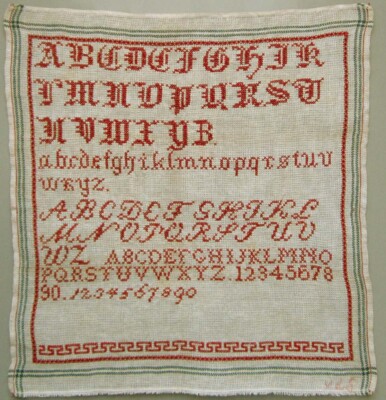 ABCDEFGHIK
LMNOPQRST
UVWXYZ.
abcdefghiklmnopqrstuv
wxyz.
ABCDEFGHIKL
MNOPQRSTUV
WZ ABCDEFGHIJKLMNO
PQRSTUVWXYZ. 12345678
90. 1234567890